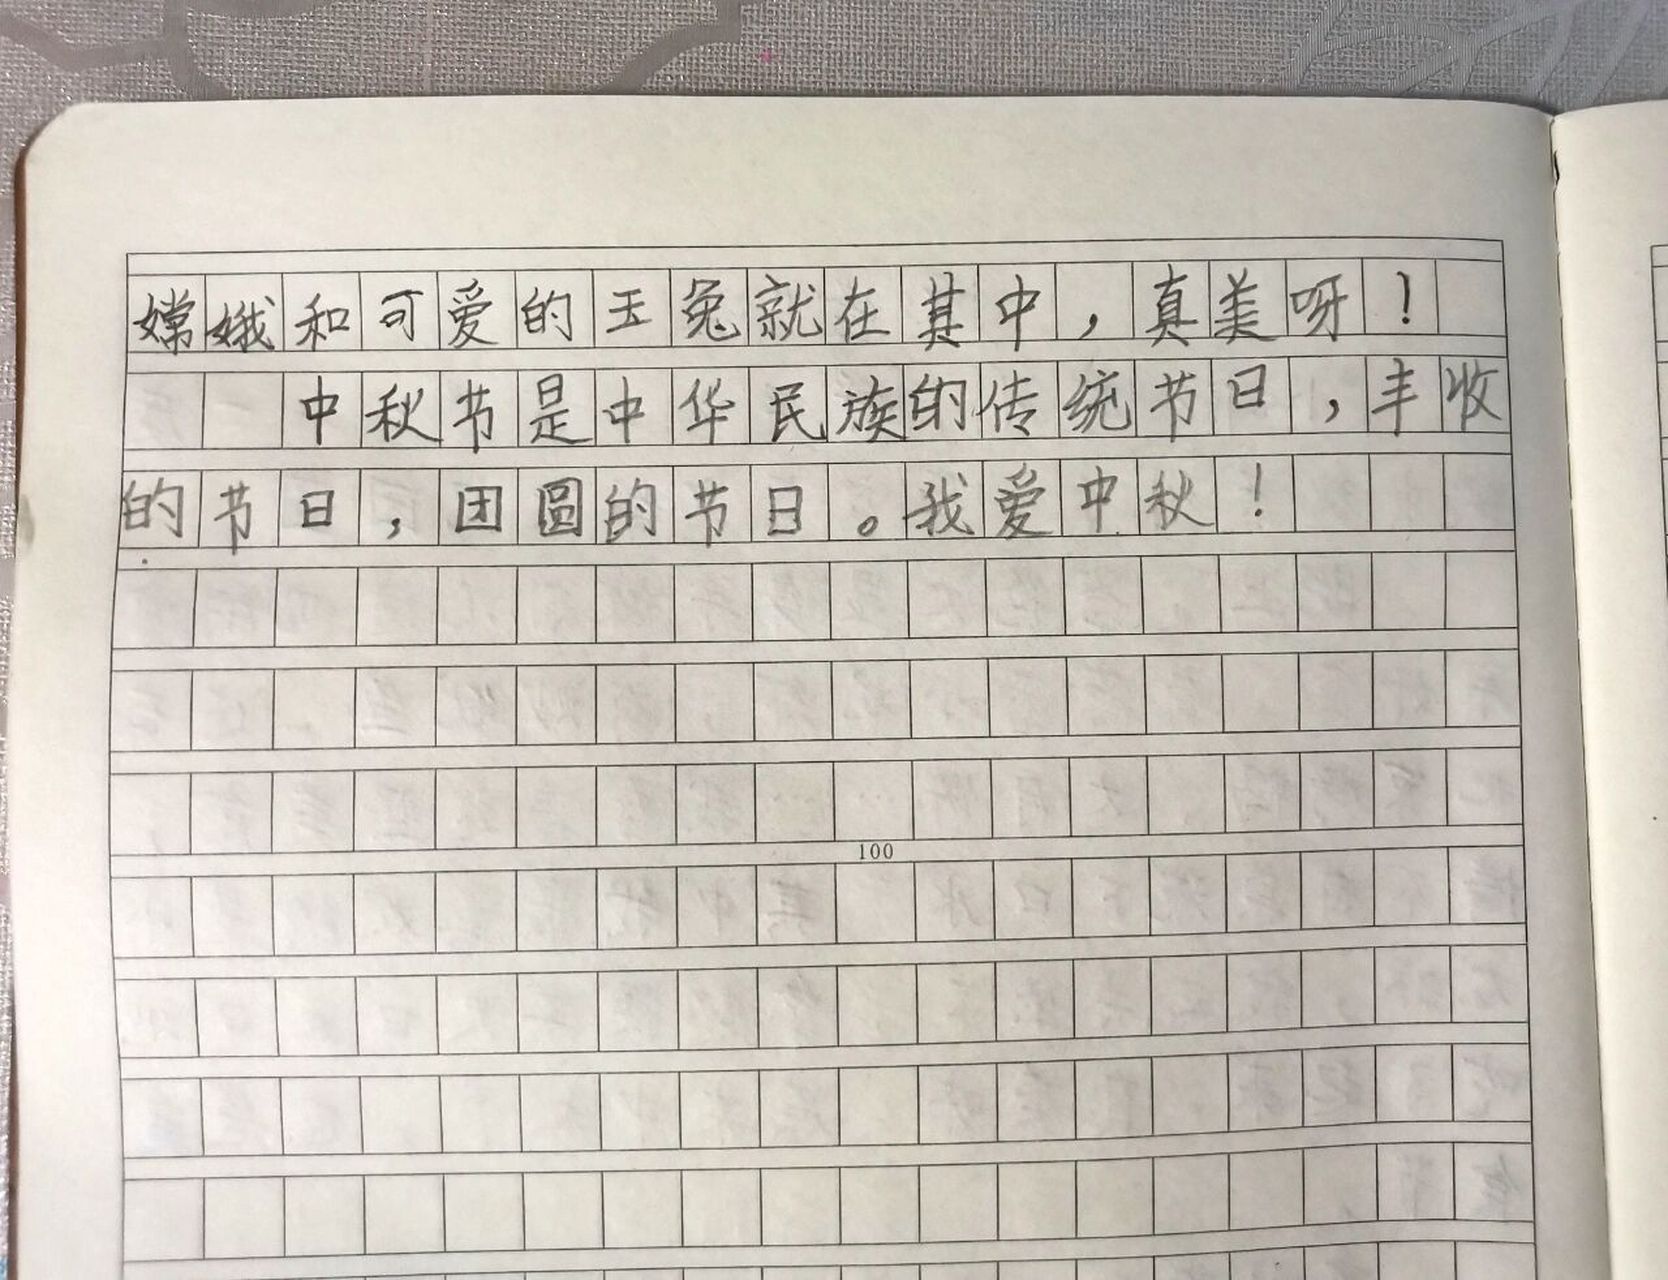 嫦娥和可爱的玉兔就在其中，真美呀！
中秋节是中华民族的传统节日，丰收
的节日，团圆的节日。我爱中秋！
100